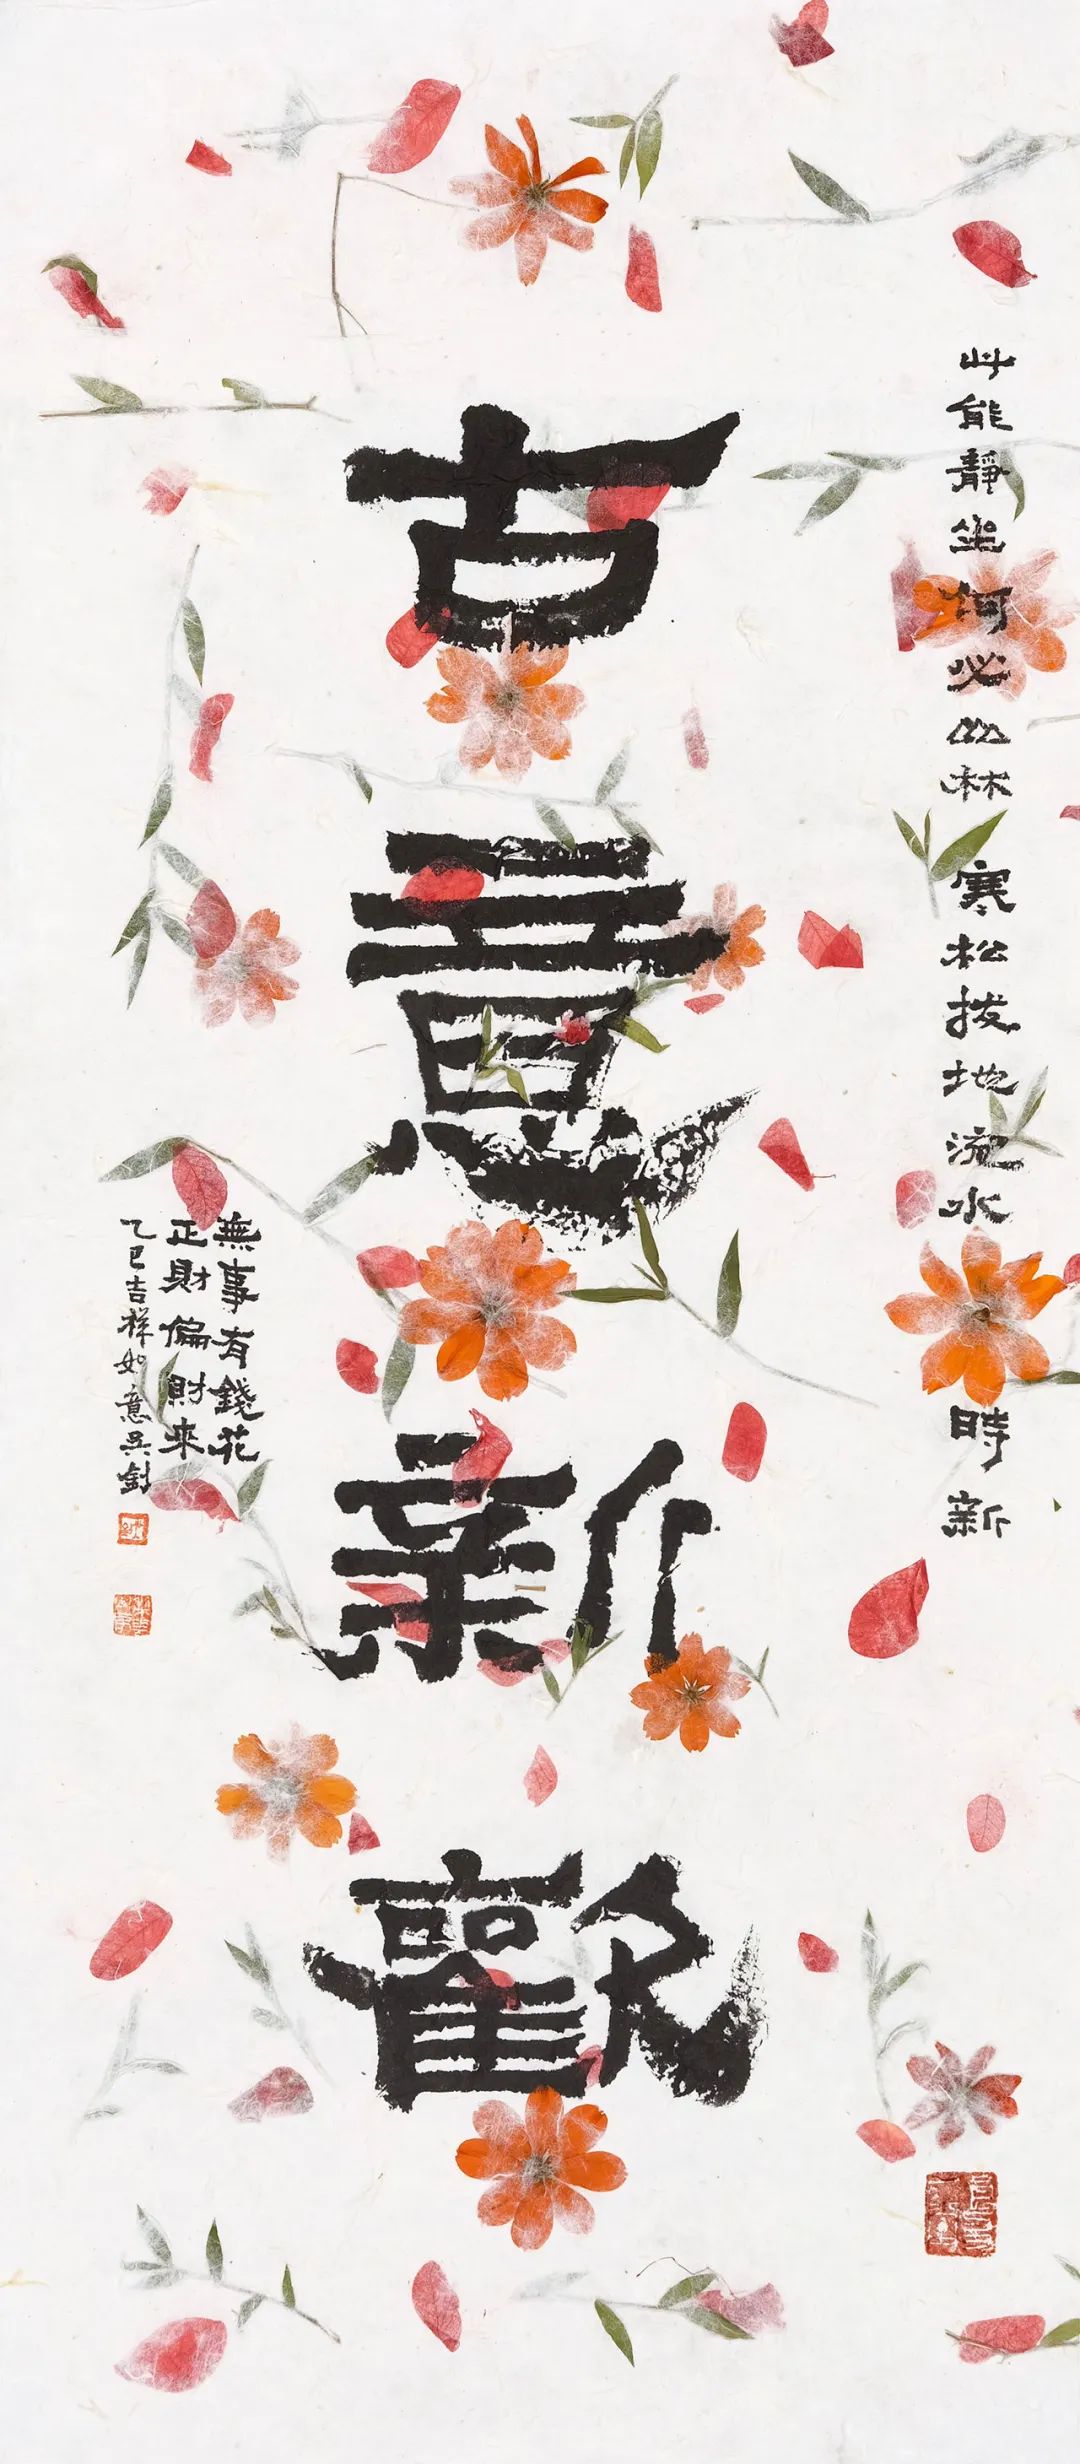 能靜坐何必山林 寒松拔地流水時新
古意新歡
無事有錢花
正財偏財來
乙巳吉祥如意吳